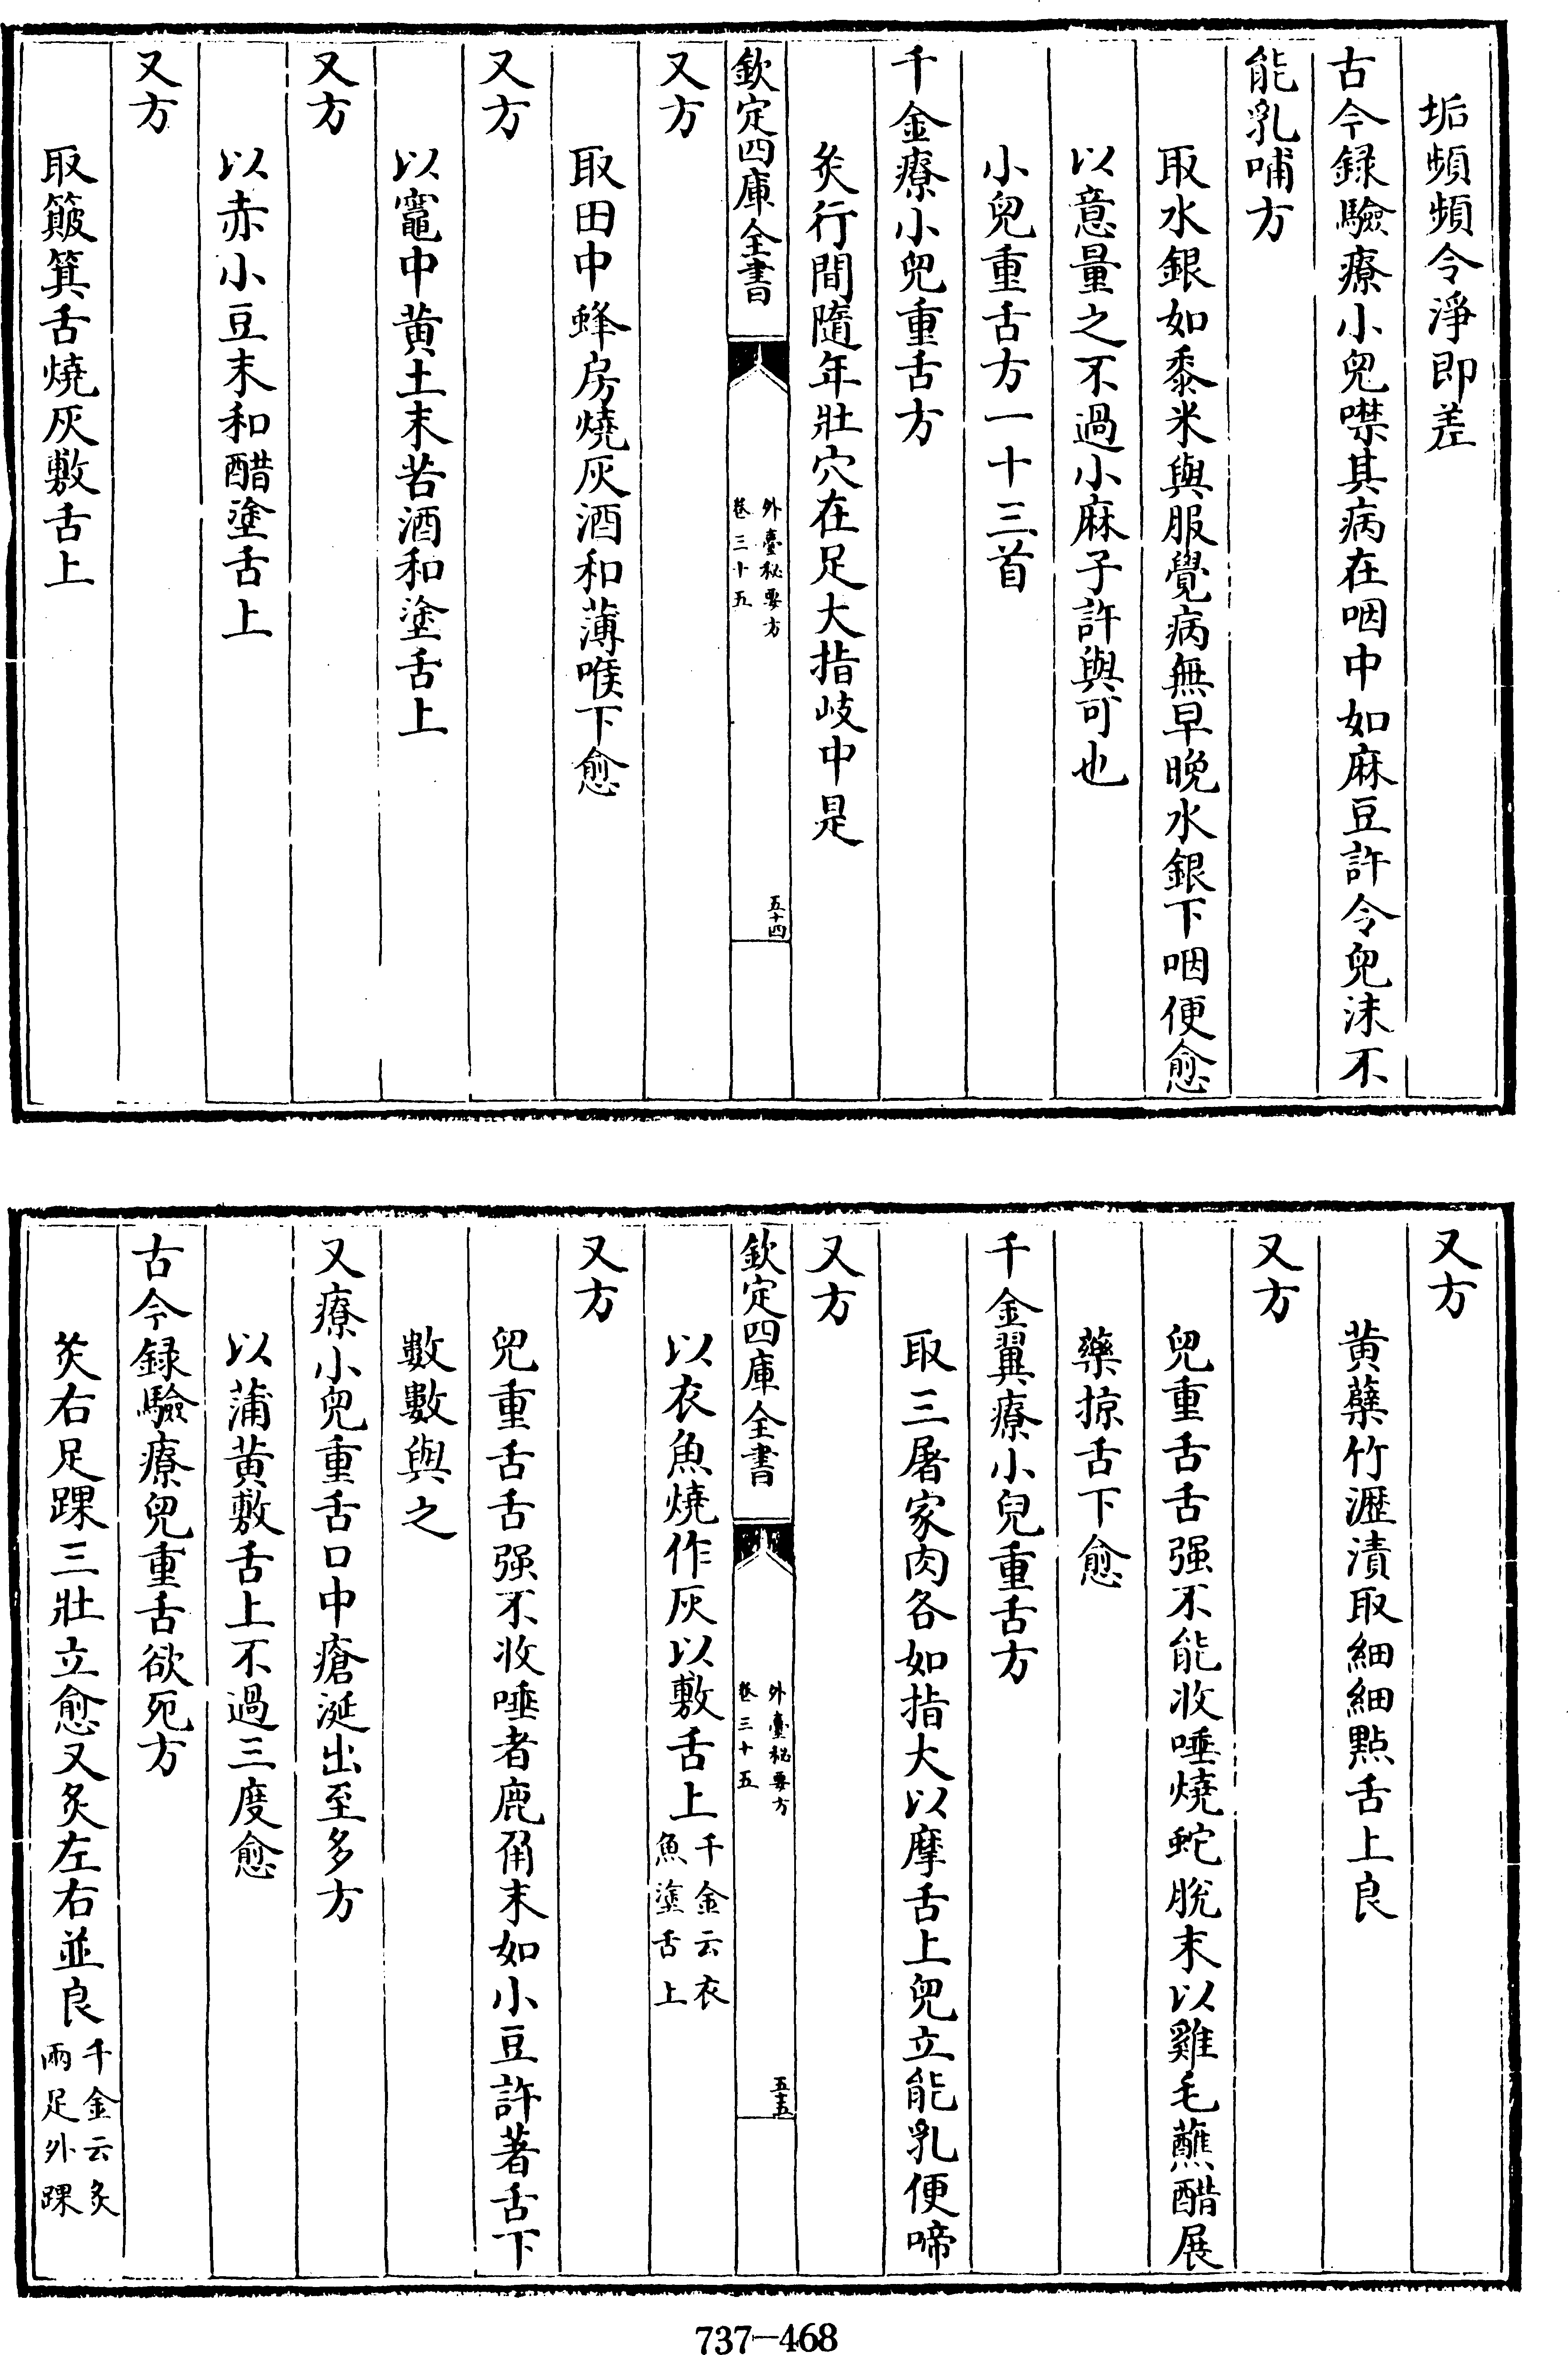 垢頻頻令淨即差
古今録驗療小兒噤其病在咽中如麻豆許令兒沫不
能乳哺方
取水銀如黍米與服覺病無早晩水銀下咽便愈
以意量之不過小麻子許與可也
小兒重舌方一十三首
千金療小兒重舌方
炙行間隨年壯穴在足大指岐中是
欽定四庫全書
外臺秘要方
卷三十五
五十四
又方
取田中蜂房燒灰酒和薄喉下愈
又方
以竈中黄土末苦酒和塗舌上
又方
以赤小豆末和醋塗舌上
又方
取簸箕舌燒灰敷舌上
又方
黄蘗竹瀝漬取細細點舌上良
又方
兒重舌舌强不能收唾燒蛇脫末以雞毛蘸醋展
藥掠舌下愈
千金翼療小兒重舌方
取三屠家肉各如指大以摩舌上兒立能乳便啼
又方
欽定四庫全書
外臺秘要方
卷三十五
五十五
以衣魚燒作灰以敷舌上千金云衣
魚塗舌上
又方
兒重舌舌强不收唾者鹿角末如小豆許著舌下
數數與之
又療小兒重舌口中瘡涎出至多方
以蒲黄敷舌上不過三度愈
古今録驗療兒重舌欲死方
炙右足踝三壯立愈又炙左右並良千金云炙
兩足外踝
737-468